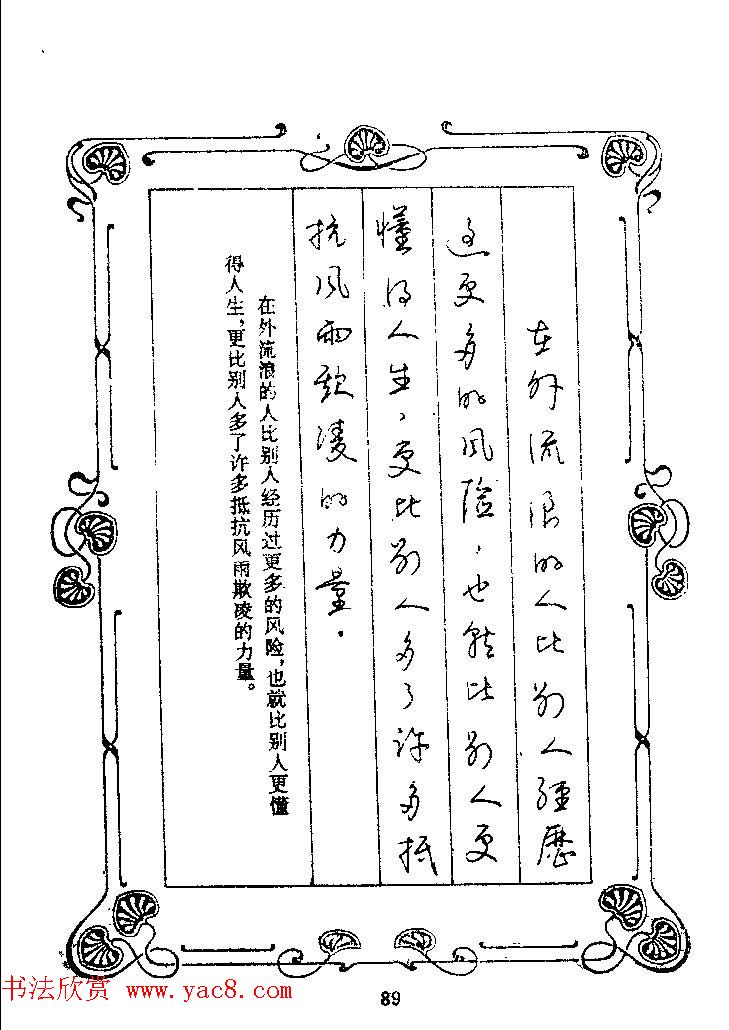 在外流浪的人比别人經歷
过更多的风险，也就比别人更
懂得人生，更比别人多了许多抵
抗风雨欺凌的力量。
在外流浪的人比别人经历过更多的风险，也就比别人更懂
得人生，更比别人多了许多抵抗风雨欺凌的力量。
书法欣赏 www.yac8.com
89